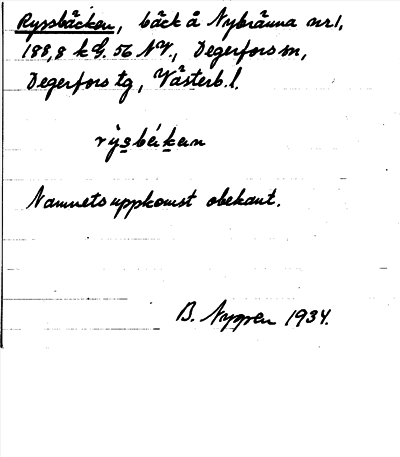 Ryssbäcken, bäck å Nybränna nr 1,
188,8 kG. 56 NV., Degerfors sn,
Degerfors tg, Västerb. l.
Namnets uppkomst obekant.
B. Nyggren 1934.